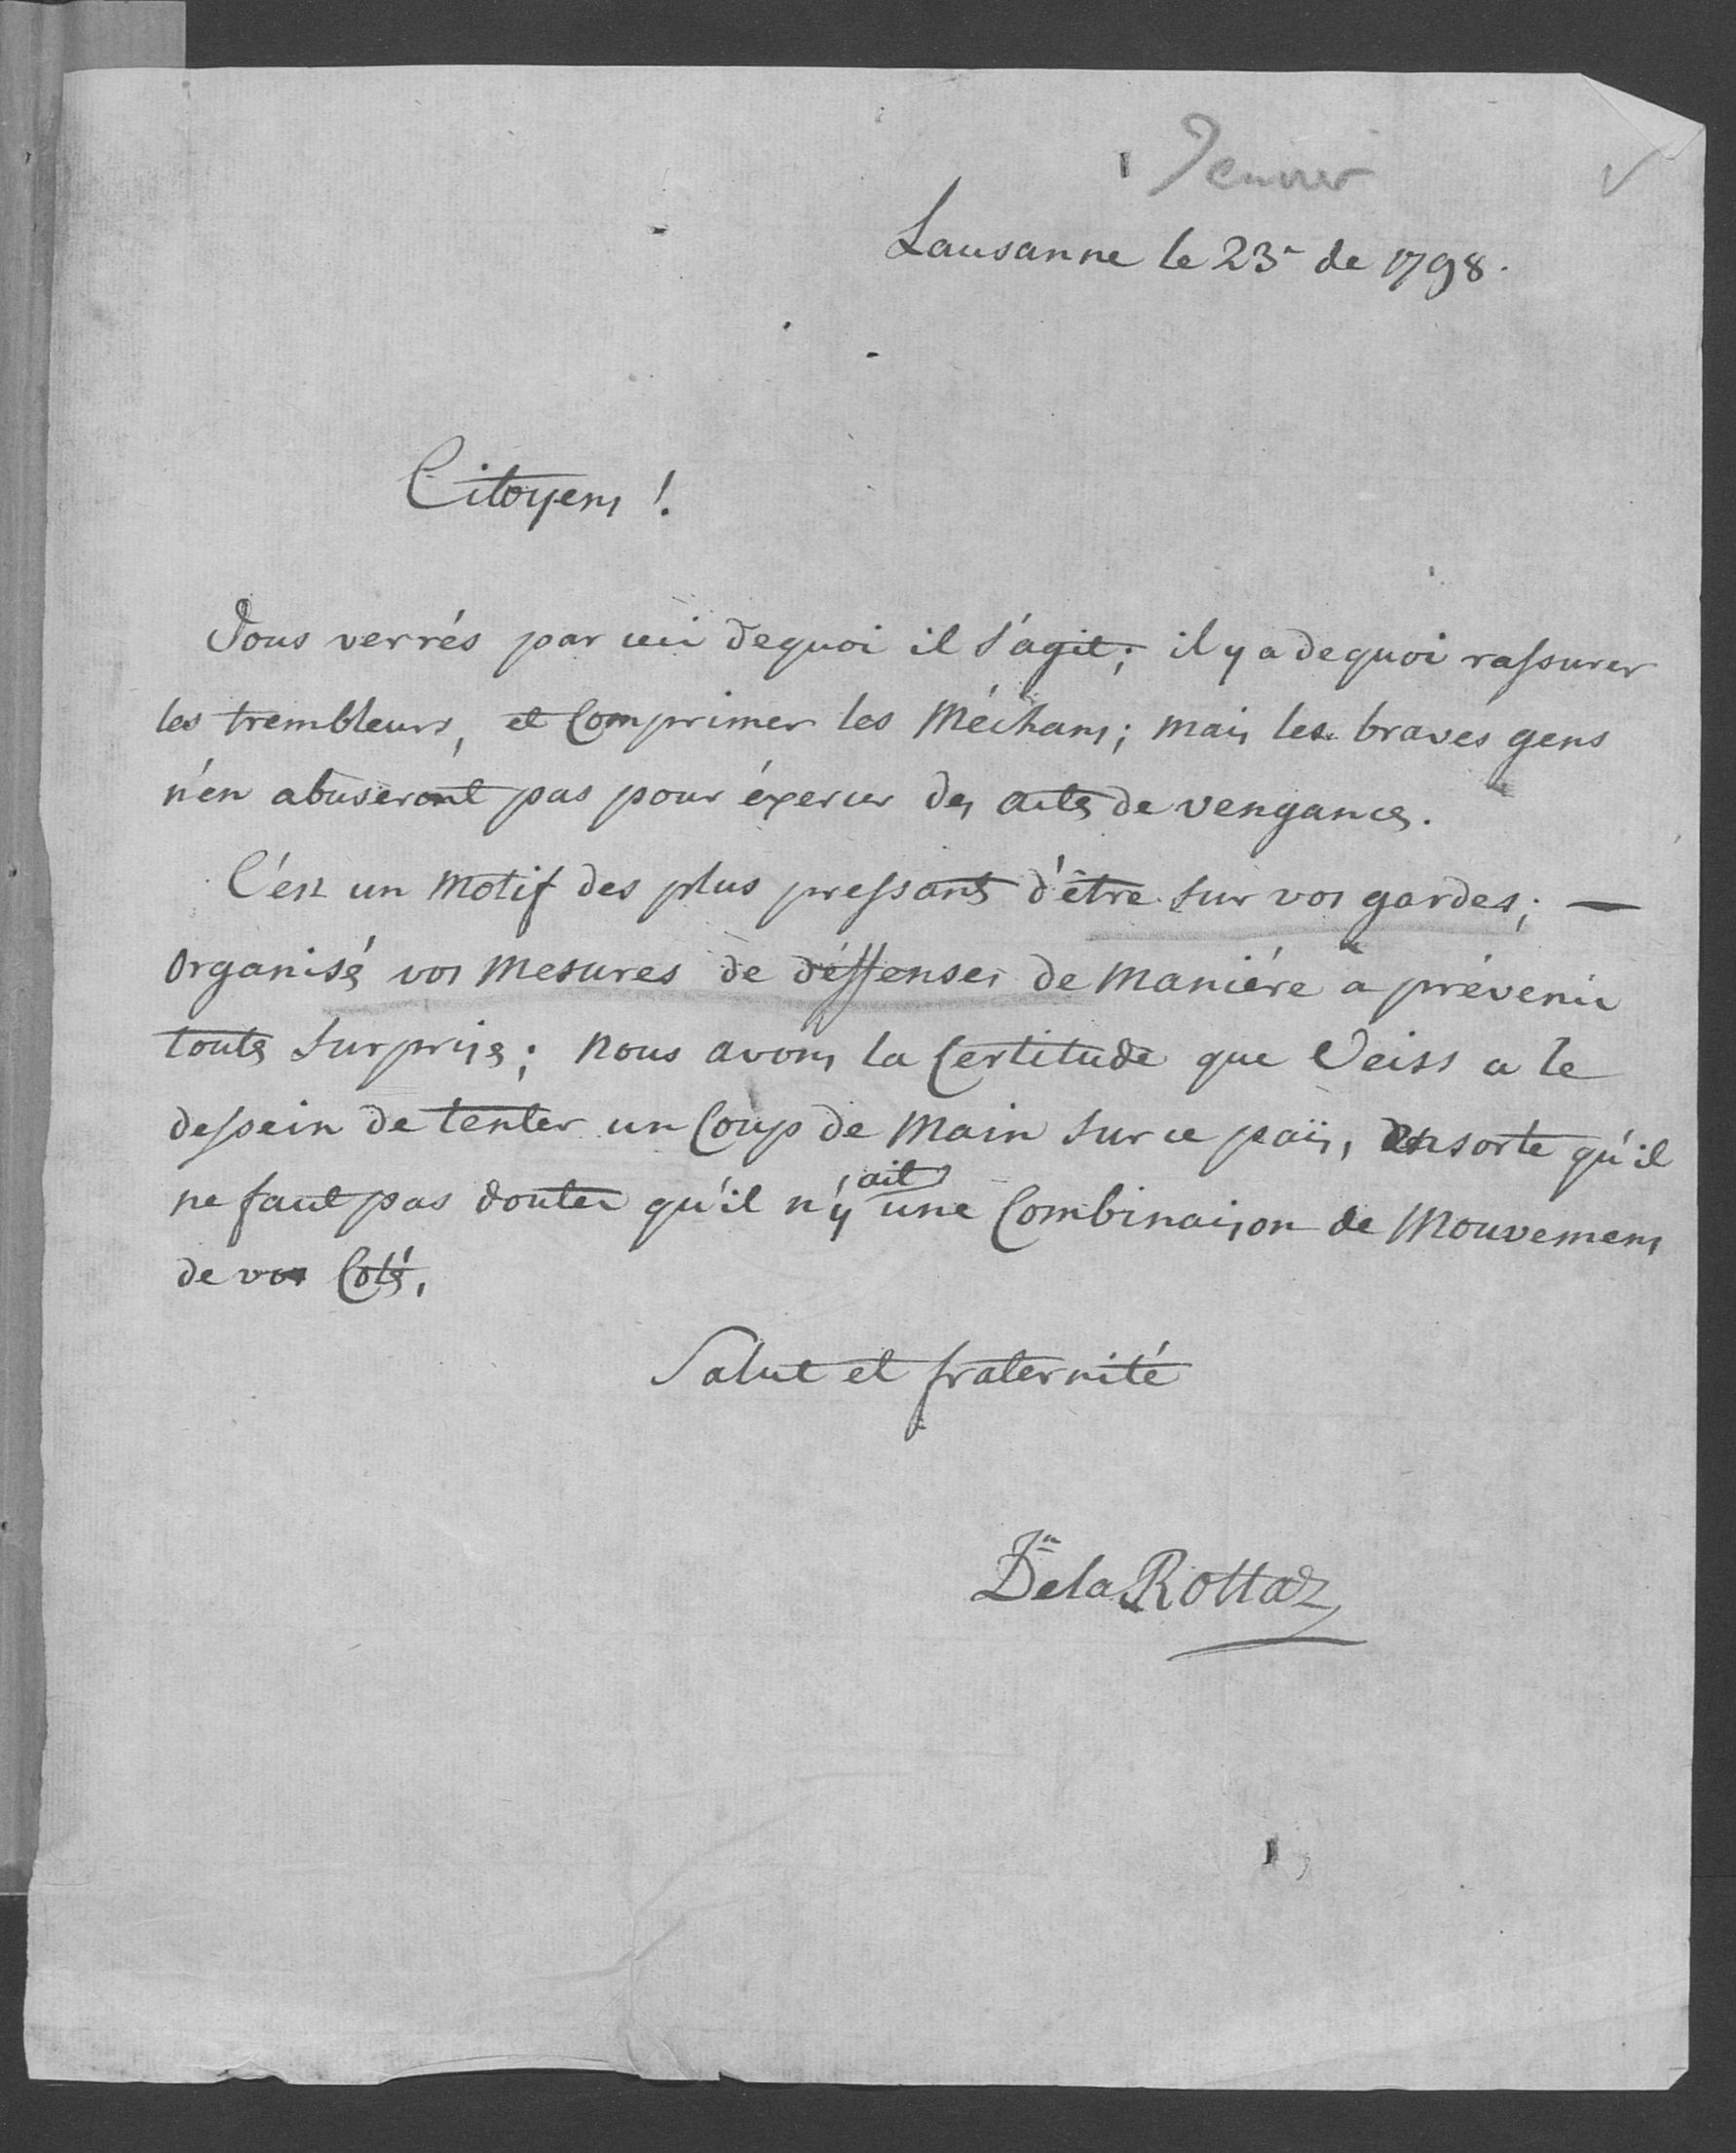 Jenvier
Lausanne le 23.e de 1798.
Citoyens !
Vous verrés par ceci dequoi il s'agit; il y a dequoi rassurer
les trembleurs, et Comprimer les Méchans; mais les braves gens
n'en abuseront pas pour éxercer des actes de vengances.
C'est un Motif des plus pressants d'être sur vos gardes; —
Organisés vos Mesures de déffenses de Maniére à prévenir
toutes surprises; Nous avons la Certitude que Veiss a le
dessein de tenter un Coup de Main sur ce païs, ensorte qu'il
ne faut pas douter qu'il n'y ait une Combinaison de Mouvemens
de vos Cotés.
Salut et fraternité
Dela Rottaz